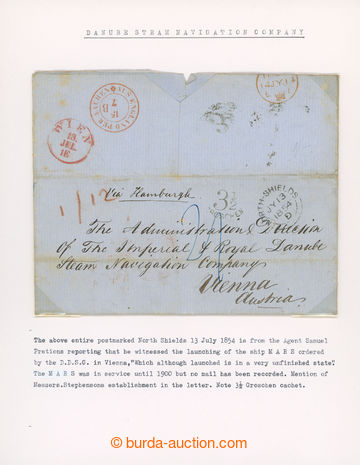 DANUBE STEAM NAVIGATION COMPANY
WIEN
18.
JUL.
1E
AUS ENGLAND PER AACHEN
Via Hamburgh.
3
NORTH-SHIELDS
JY 13
1854
D
The Administration & Direction
Of The Imperial & Royal Danube
Steam Navigation Company
Vienna
Austria
The above entire postmarked North Shields 13 July 1854 is from the Agent Samuel
Prations reporting that be witnessed the launching of the ship M A R S ordered
by the D.D.S.G. in Vienna,"Which although launched is in a very unfinished state".
The M A R S was in service until 1900 but no mail has been recorded. Mention of
Messers.Stephensons establishment in the letter. Note 3½ Groschen cachet.
burda-auction.com